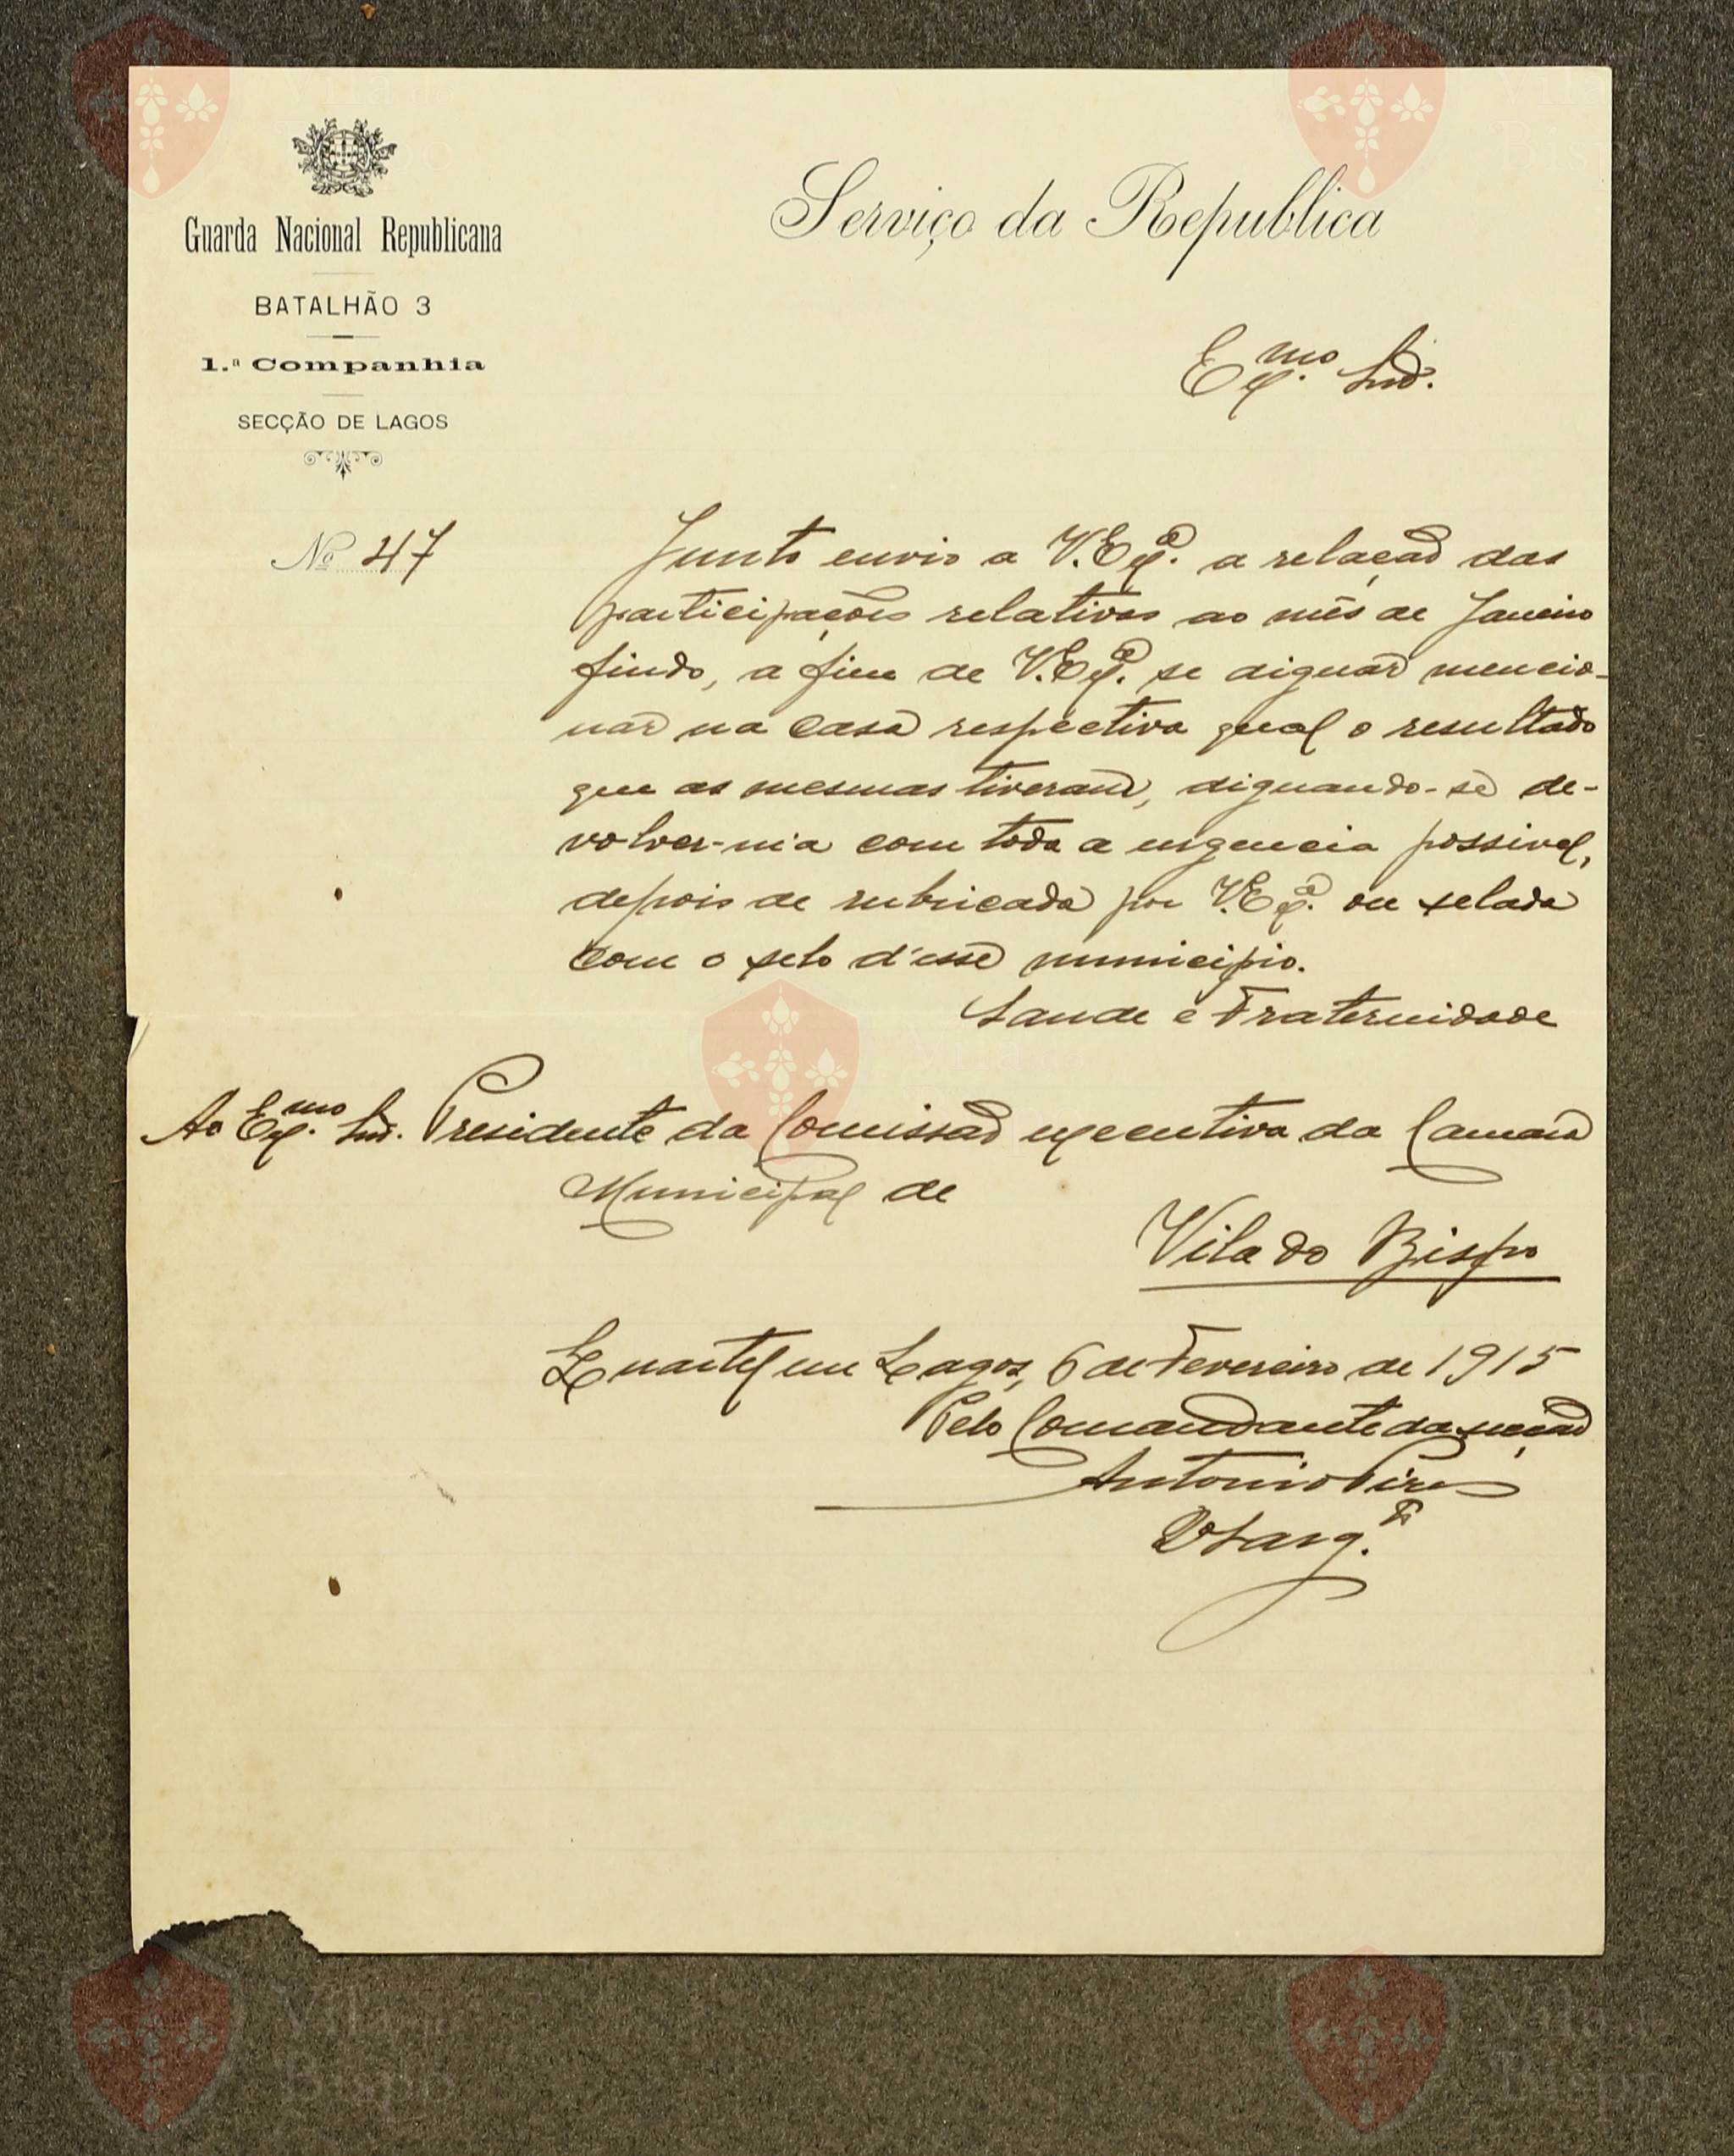 Guarda Nacional Republicana
BATALHÃO 3
1.ª Companhia
SECÇÃO DE LAGOS
Nº 47
Serviço da Republica
Exmo. Snr.
Junto envio a V.Exª. a relação das
participações relativas ao mês de Janeiro
findo, a fim de V.Exª. se dignar mencio-
nar na casa respectiva qual o resultado
que as mesmas tiveram, dignando-se de-
volver-m'a com toda a urgencia possivel,
depois de rubricada por V.Exª. ou selada
com o selo d'esse municipio.
Saude e Fraternidade
Ao Exmo. Snr. Presidente da Comissão executiva da Camara
Municipal de
Vila do Bispo
Quartel em Lagos, 6 de Fevereiro de 1915
Pelo Comandante da secção
Antonio Pires
2º Sarg.to
Vila do
Bispo